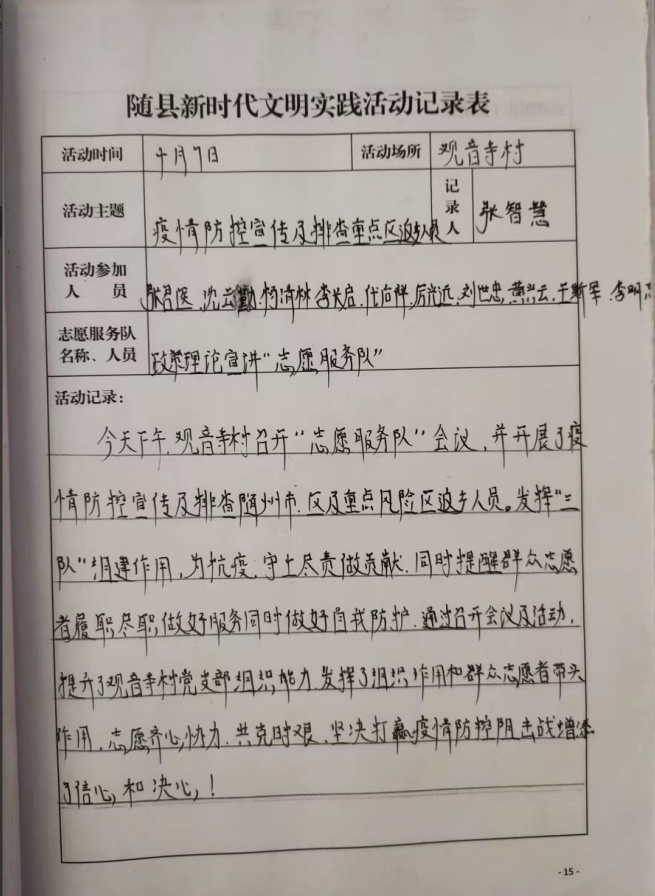 随县新时代文明实践活动记录表
活动时间 十月7日 活动场所 观音寺村
活动主题 疫情防控宣传及排查重点区返乡人员 记录人 张智慧
活动参加人员 张君医、沈云勤、柯清林、李长启、代向群、厉光远、刘世忠、黄兴云、王新军、李明
志愿服务队名称、人员 政策理论宣讲“志愿服务队”
活动记录：
今天下午，观音寺村召开“志愿服务队”会议，并开展了疫
情防控宣传及排查随州市、区及重点风险区返乡人员。发挥“三
队”组建作用，为抗疫、守土尽责做贡献，同时提醒群众志愿
者履职尽职做好服务同时做好自我防护，通过召开会议及活动，
提升了观音寺村党支部组织能力，发挥了组织作用和群众志愿者带头
作用，志愿齐心协力，共克时艰，坚决打赢疫情防控阻击战增添
了信心和决心！
- 15 -